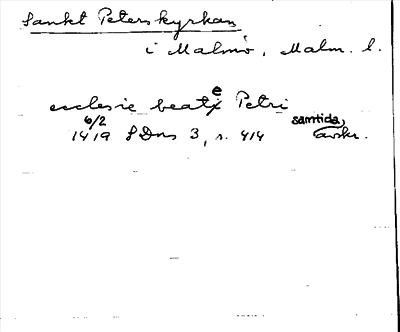 Sankt Peterskyrkan
i Malmö, Malm. l.
ecclesie beate Petri
6/2 samtida,
1419 SDns 3, s. 414 avskr.